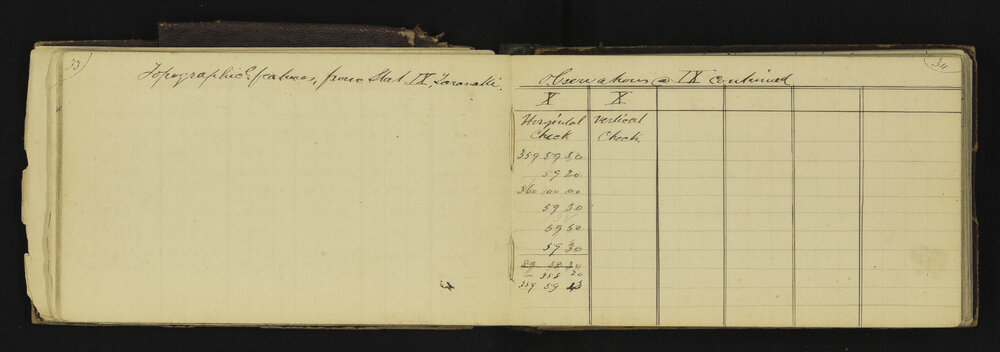 33
Topographic features, from Stat IX, Taranaki.
34
Observations @ IX Continued
X X
Horizontal Vertical
Check Check
359 59 50
59 20
360 00 00
59 30
59 50
59 30
89 58 30
358 20
359 59 43